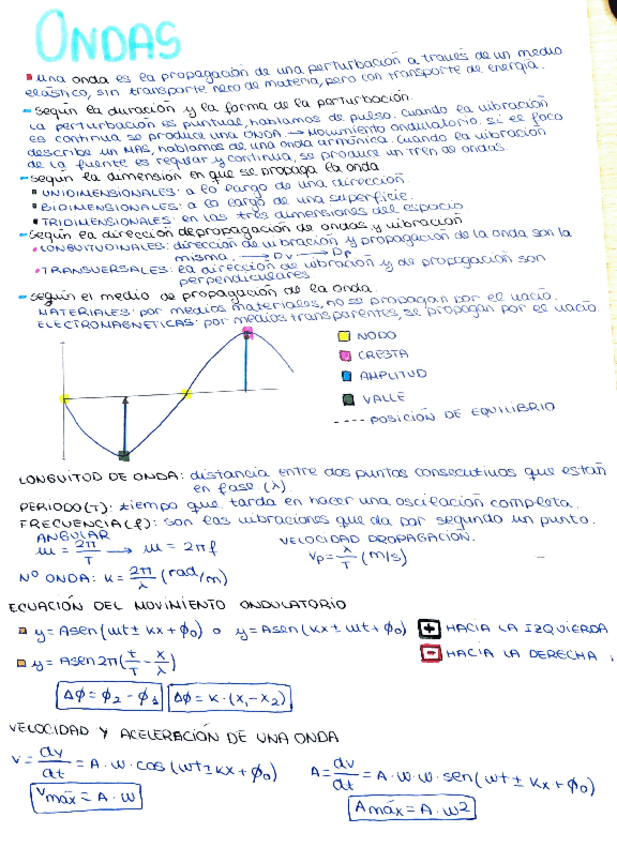 ONDAS
una onda es la propagación de una perturbación a través de un medio
elástico, sin transporte neto de materia, pero con transporte de energía.
- según la duración y la forma de la perturbación.
La perturbación es puntual, hablamos de pulso. Cuando la vibración
es continua se produce una ONDA. → Movimiento ondulatorio. Si el foco
describe un MAS, hablamos de una onda armónica. Cuando la vibración
de la fuente es regular y continua, se produce un tren de ondas.
- según la dimensión en que se propaga la onda
UNIDIMENSIONALES: a lo largo de una dirección.
BIDIMENSIONALES: a lo largo de una superficie.
TRIDIMENSIONALES: en las tres dimensiones del espacio
- según la dirección de propagación de ondas y vibración
LONGUITUDINALES: dirección de vibración y propagación de la onda son la
misma. → Dv → Dp
TRANSVERSALES: la dirección de vibración y de propagación son
perpendiculares
- según el medio de propagación de la onda.
MATERIALES: por medios materiales, no se propagan por el vacío.
ELECTROMAGNETICAS: por medios transparentes, se propagan por el vacío.
NODO
CRESTA
AMPLITUD
VALLE
---- POSICIÓN DE EQUILIBRIO
LONGUITOD DE ONDA: distancia entre dos puntos consecutivos que están
en fase (λ)
PERÍODO (T): tiempo que tarda en hacer una oscilación completa.
FRECUENCIA (f): son las vibraciones que da por segundo un punto.
ANGULAR
ω = 2π/T → ω = 2πf
VELOCIDAD PROPAGACIÓN.
Vp = λ/T (m/s)
Nº ONDA: K = 2π/λ (rad/m)
ECUACIÓN DEL MOVIMIENTO ONDULATORIO
y = A sen (ωt ± kx + ϕ0) o y = A sen (kx ± ωt + ϕ0)
+ HACIA LA IZQUIERDA
- HACIA LA DERECHA
y = A sen 2π (t/T - x/λ)
Δϕ = ϕ2 - ϕ1
Δϕ = K · (x1 - x2)
VELOCIDAD Y ACELERACIÓN DE UNA ONDA
V = dy/dt = A · w · cos (wt ± kx + ϕ0)
A = dv/dt = A · w · w · sen (wt ± kx + ϕ0)
Vmáx = A · w
Amáx = A · w2